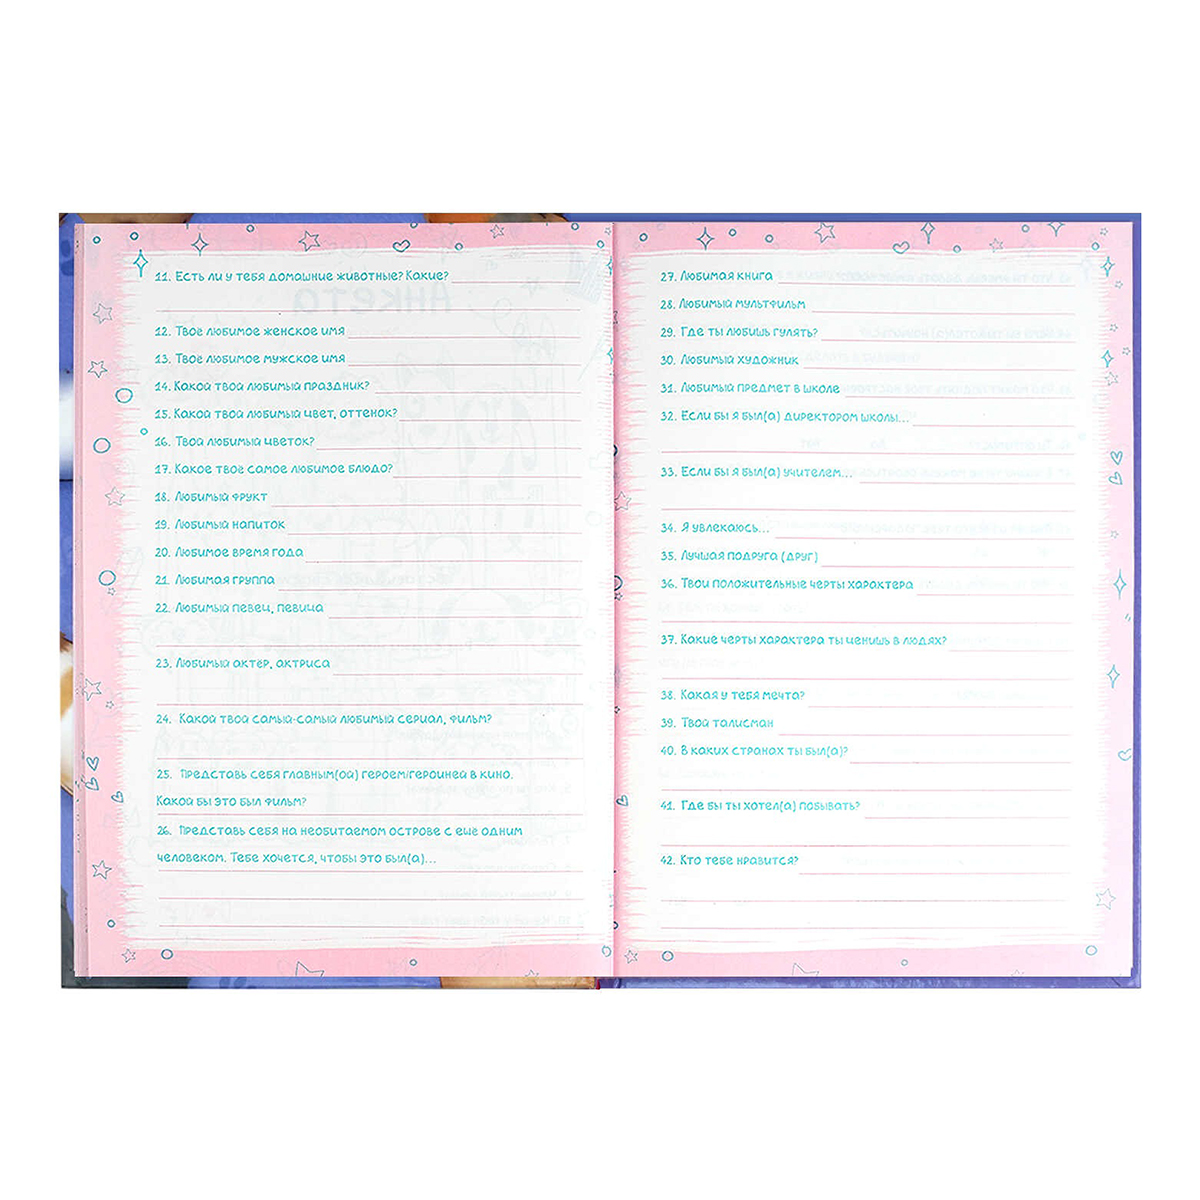 11. Есть ли у тебя домашние животные? Какие?
12. Твоё любимое женское имя
13. Твоё любимое мужское имя
14. Какой твой любимый праздник?
15. Какой твой любимый цвет, оттенок?
16. Твой любимый цветок?
17. Какое твоё самое любимое блюдо?
18. Любимый фрукт
19. Любимый напиток
20. Любимое время года
21. Любимая группа
22. Любимый певец, певица
23. Любимый актёр, актриса
24. Какой твой самый-самый любимый сериал, фильм?
25. Представь себя главным(ой) героем/героиней в кино.
Какой бы это был фильм?
26. Представь себя на необитаемом острове с ещё одним
человеком. Тебе хочется, чтобы это был(а)...
27. Любимая книга
28. Любимый мультфильм
29. Где ты любишь гулять?
30. Любимый художник
31. Любимый предмет в школе
32. Если бы я был(а) директором школы...
33. Если бы я был(а) учителем...
34. Я увлекаюсь...
35. Лучшая подруга (друг)
36. Твои положительные черты характера
37. Какие черты характера ты ценишь в людях?
38. Какая у тебя мечта?
39. Твой талисман
40. В каких странах ты был(а)?
41. Где бы ты хотел(а) побывать?
42. Кто тебе нравится?
Анкета